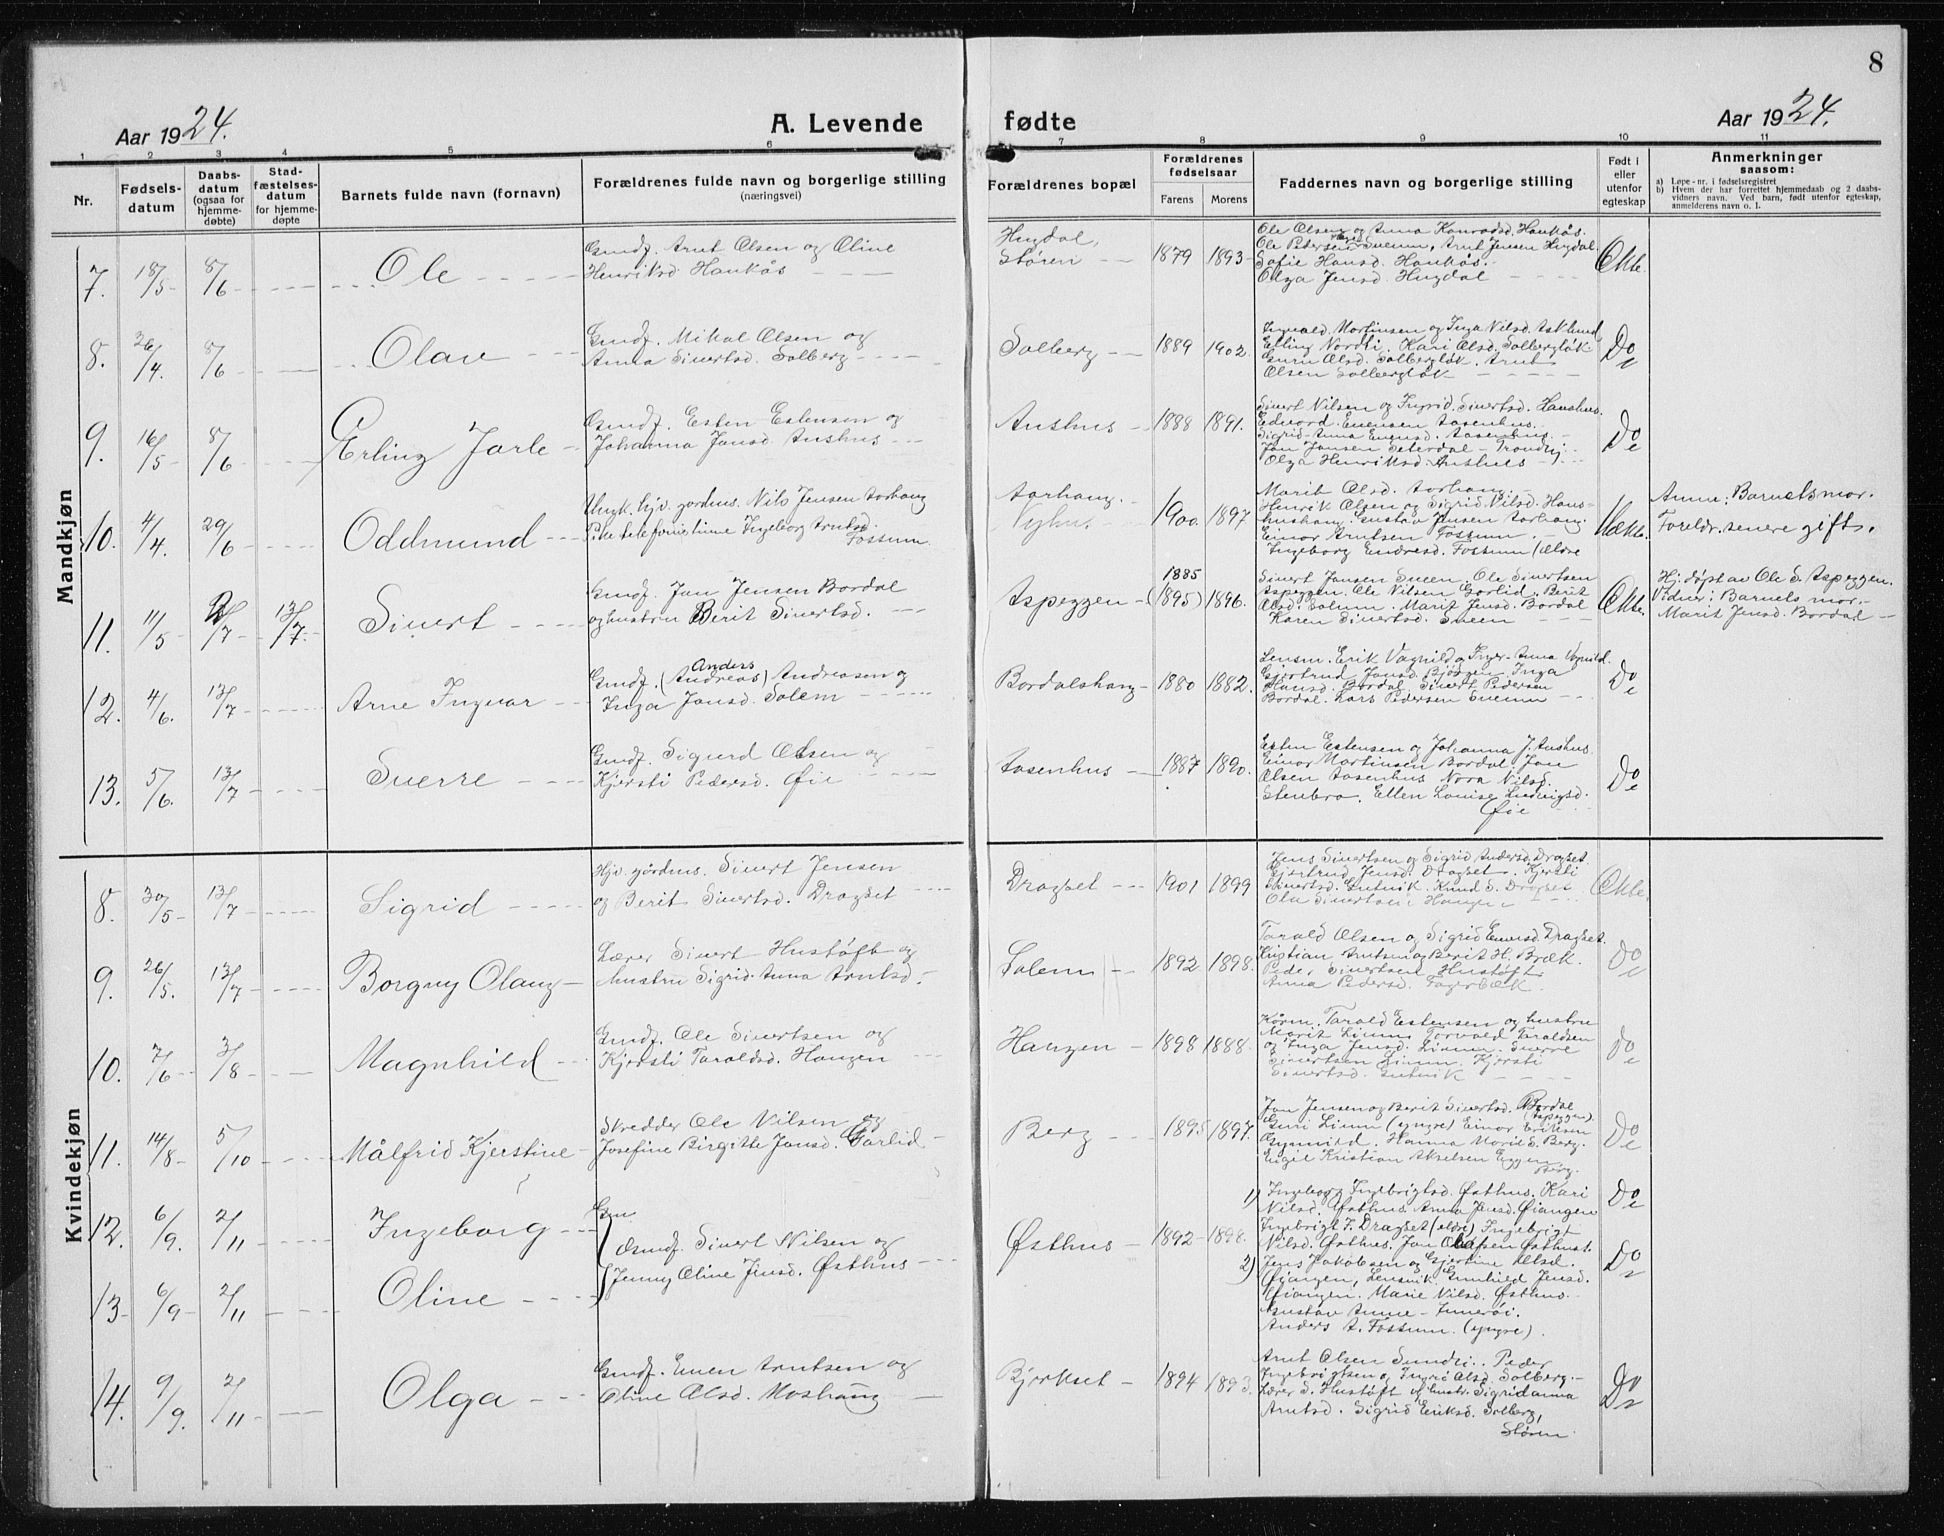 8
Aar 1924.
A. Levende fødte
Aar 1924.
1 2 3 4 5 6 7 8 9 10 11
Nr.
Fødsels-
datum
Daabs-
datum
(ogsaa for
hjemme-
døbte)
Stad-
fæstelses-
datum
for hjemme-
døpte
Barnets fulde navn (fornavn)
Forældrenes fulde navn og borgerlige stilling
(næringsvei)
Forældrenes bopæl
Forældrenes
fødselsaar
Farens Morens
Faddernes navn og borgerlige stilling
Født i
eller
utenfor
egteskap
Anmerkninger
saasom:
a) Løpe-nr. i fødselsregistret
b) Hvem der har forrettet hjemmedaab og 2 daabs-
vidners navn. Ved barn, født utenfor egteskap,
anmelderens navn o. l.
Mandkjøn
7. 18/5 8/6 Ole
Gmdf. Arnt Olsen og Oline
Henriksd Haukås
Hugdal,
Støren
1879 1893
Ole Olsen og Anna Konradsd. Haukås.
Ole Pedersen Snemm, Arnt Jensen Hugdal.
Sofie Hansd. Haukås.
Olga Jensd. Hugdal
Ekte.
8. 26/4. 8/6 Olav
Gmdf. Mikal Olsen og
Anna Sivertsd. Solberg
Solberg
1889 1902.
Ingvald Martinsen og Inga Nilsd. Asklund
Elling Nordli. Kari Olsd. Solbergløk
Guru Olsd. Solbergløk. Arnt
Olsen Solbergløk
Do
9. 16/5 8/6 Erling Jarle
Gmdf. Esten Estensen og
Johanna Jonsd. Aushus
Aushus
1888 1891.
Sivert Nilsen og Ingrid Sivertsd. Haushus.
Edvard Evensen Aasenhus.
Sigrid-Anna Evensd. Aasenhus.
Jon Jonsen Seterdal - Trondhj.
Olga Henriksd. Aushus
Do
10. 4/4. 29/6 Oddmund
Ungk. hjv. gårdens. Nils Jensen Aarhaug
Pike telefonistinne Ingeborg Arntsd.
Fossum.
Aarhaug.
Nyhus.
1900 1897
Marit Olsd. Aarhaug.
Henrik Olsen og Sigrid Nilsd. Hans-
hushaug. Gustav Jensen Aarhaug.
Einar Arntsen Fossum.
Ingeborg Endresd. Fossum (eldre
Uekte.
Anm: Barnets mor.
Foreldr. senere gift.
11. 11/5 2/7 13/7. Sivert
Gmdf. Jon Jensen Bordal
og hustru Berit Sivertsd.
Aspeggen
1885
(1895) 1896.
Sivert Jonsen Sneen. Ole Sivertsen
Aspeggen. Ole Nilsen Garlid. Berit
Olsd. Solum. Marit Jensd. Bordal
Karen Sivertsd. Sneen
Ekte.
Hj. døpt av Ole S. Aspeggen.
Vidner: Barnets mor.
Marit Jensd. Bordal
12. 4/6. 13/7 Arne Ingvar
Anders
Gmdf. (Andreas) Andreasen og
Inga Jonsd. Solem
Bordalshaug
1880 1882.
Lensm. Erik Vagnild og Inger-Anna Vagnild.
Gjertrud Jonsd. Bjørgen. Inga
Hansd. Bordal. Sivert Pedersen
Bordal. Lars Pedersen Snemm
Do
13. 5/6. 13/7 Sverre
Gmdf. Sigurd Olsen og
Kjersti Pedersd. Øie
Aasenhus
1887 1890.
Esten Estensen og Johanna J. Aushus.
Einar Martinsen Bordal. Jon
Olsen Aasenhus Nora Nilsd.
Stenbro. Ellen Louise Ludvigsd.
Øie
Do
Kvindekjøn
8. 30/5 13/7 Sigrid
Hjv. gårdens. Sivert Jensen
og Berit Sivertsd. Dragset
Dragset
1901 1899
Jens Sivertsen og Sigrid Andersd. Dragset
Gjertrud Jensd. Dragset. Kjersti
Sivertsd. Gutvik. Knud S. Dragset
Ola Sivertsen Haugen
Ekte.
9. 26/5. 13/7 Borgny Olaug
Lærer Sivert Hustøft og
hustru Sigrid-Anna Arntsd.
Solem
1892 1898.
Tarald Olsen og Sigrid Evensd. Dragset.
Kristian Arntsen og Berit H. Bræk.
Peder Sivertsen Hustøft
Anna Pedersd. Fagerbæk.
Do
10. 7/6 3/8 Magnhild
Gmdf. Ole Sivertsen og
Kjersti Taraldsd. Haugen
Haugen
1898 1888.
Kårm. Tarald Estensen og hustru
Marit Lium. Torvald Taraldsen
og Inga Jensd. Lium. Sverre
Sivertsen Lium. Kjersti
Sivertsd. Gutvik
Do
11. 14/8 5/10 Målfrid Kjerstine
Skredder Ole Nilsen og
Josefine Birgitte Jonsd. Garlid
Berg
1895 1897.
Jon Jensen og Berit Sivertsd. Bordal
(Aspeggen).
Guri Lium (yngre) Einar Eriksen
Gynnild. Hanna Marie S. Berg.
Engil Kristian Akselsen Eggen
Berg.
Do
12. 6/9. 2/11 Ingeborg
13 6/9 2/11 Oline
Gm
Gmdf. Sivert Nilsen og
Jenny Oline Jensd. Østhus
Østhus
1892 1898.
1) Ingeborg Ingebrigtsd. Østhus. Kari
Nilsd. Østhus Anna Jensd. Øiangen
Ingebrigt I. Dragset (eldre) Ingebrigt
Nilsd. Østhus. Jon Olafsen Østhus.
2) Jens Jakobsen og Gjertine Olsd.
Øiangen, Lensvik Gunhild Jensd.
Øiangen. Marie Nilsd. Østhus.
Gustav Aune - Inderøi.
Anders A. Fossum. (yngre).
Do
Do
14. 9/9. 2/11 Olga
Gmdf. Even Arntsen og
Oline Olsd. Moshaug
Bjerkset
1894 1893.
Arnt Olsen Sundli. Peder
Ingebrigtsen og Ingri Olsd. Solberg.
Lærer S. Hustøft og hustr. Sigridanna
Arntsd. Sigrid Eriksd. Solberg,
Støren
Do